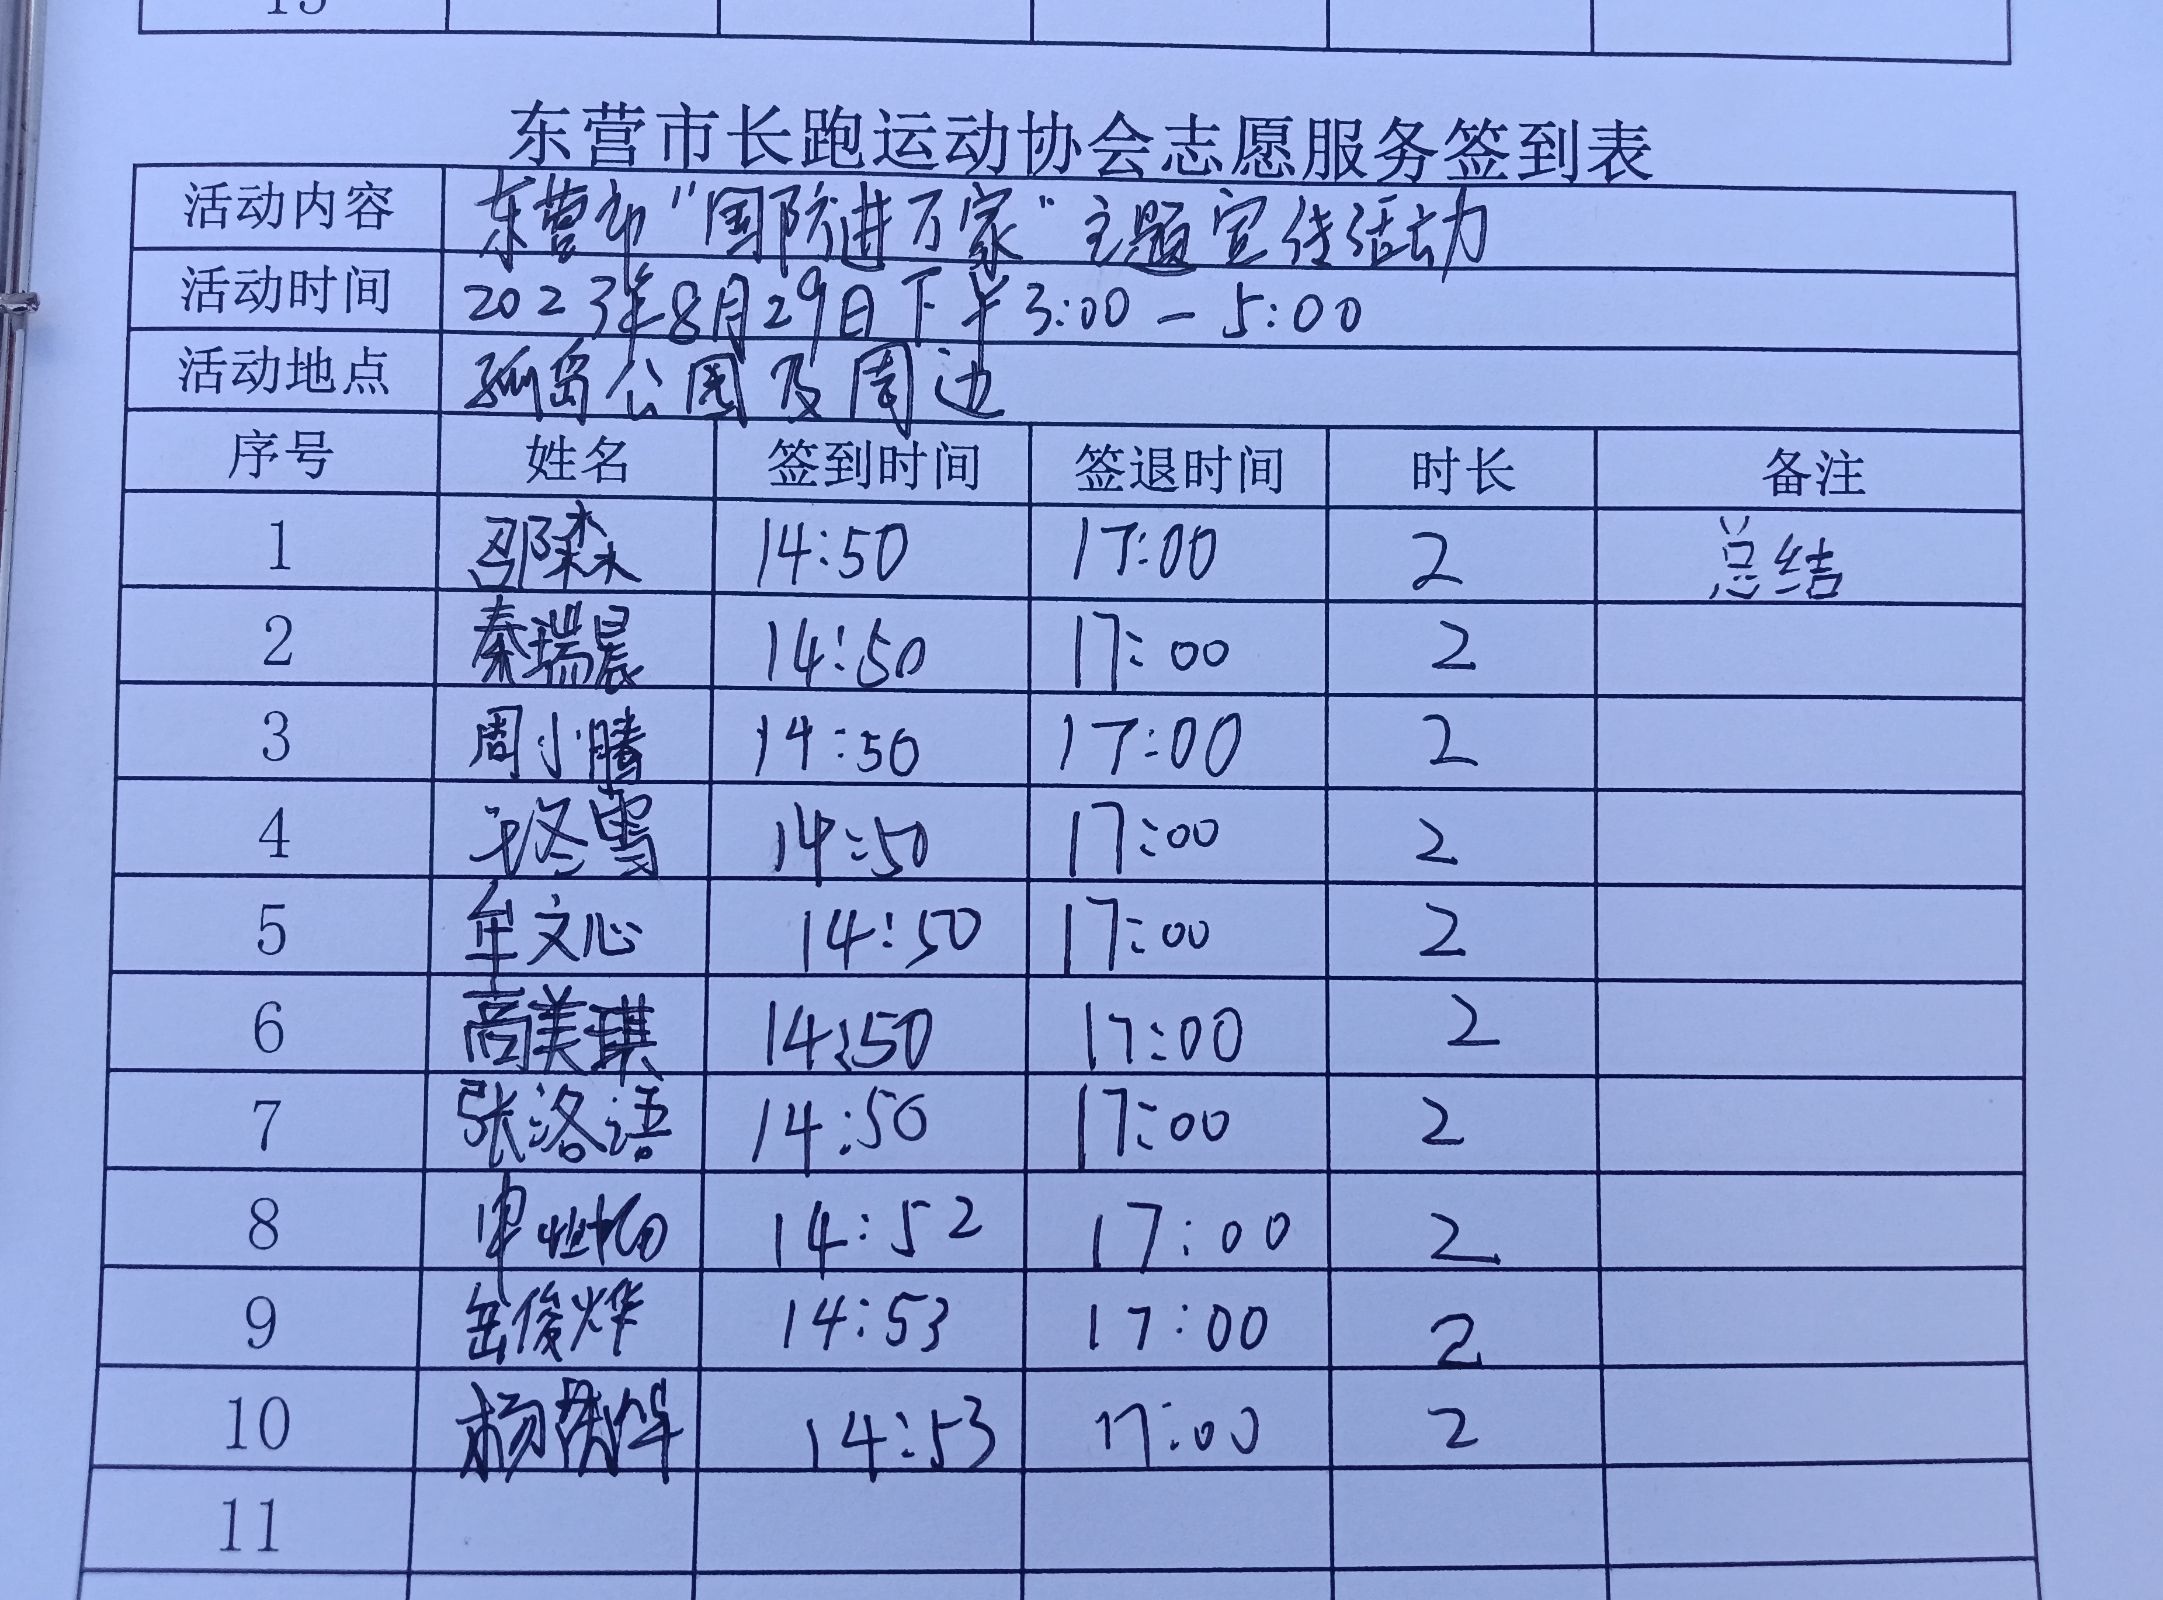 15
东营市长跑运动协会志愿服务签到表
活动内容 东营市"国防进万家"主题宣传活动
活动时间 2023年8月29日下午3:00-5:00
活动地点 孤岛公园及周边
序号 姓名 签到时间 签退时间 时长 备注
1 邵森 14:50 17:00 2 总结
2 秦瑞晨 14:50 17:00 2
3 周小腾 14:50 17:00 2
4 王冬雪 14:50 17:00 2
5 牟文心 14:50 17:00 2
6 高美琪 14:50 17:00 2
7 张洛语 14:50 17:00 2
8 14:52 17:00 2
9 岳俊烨 14:53 17:00 2
10 杨 14:53 17:00 2
11